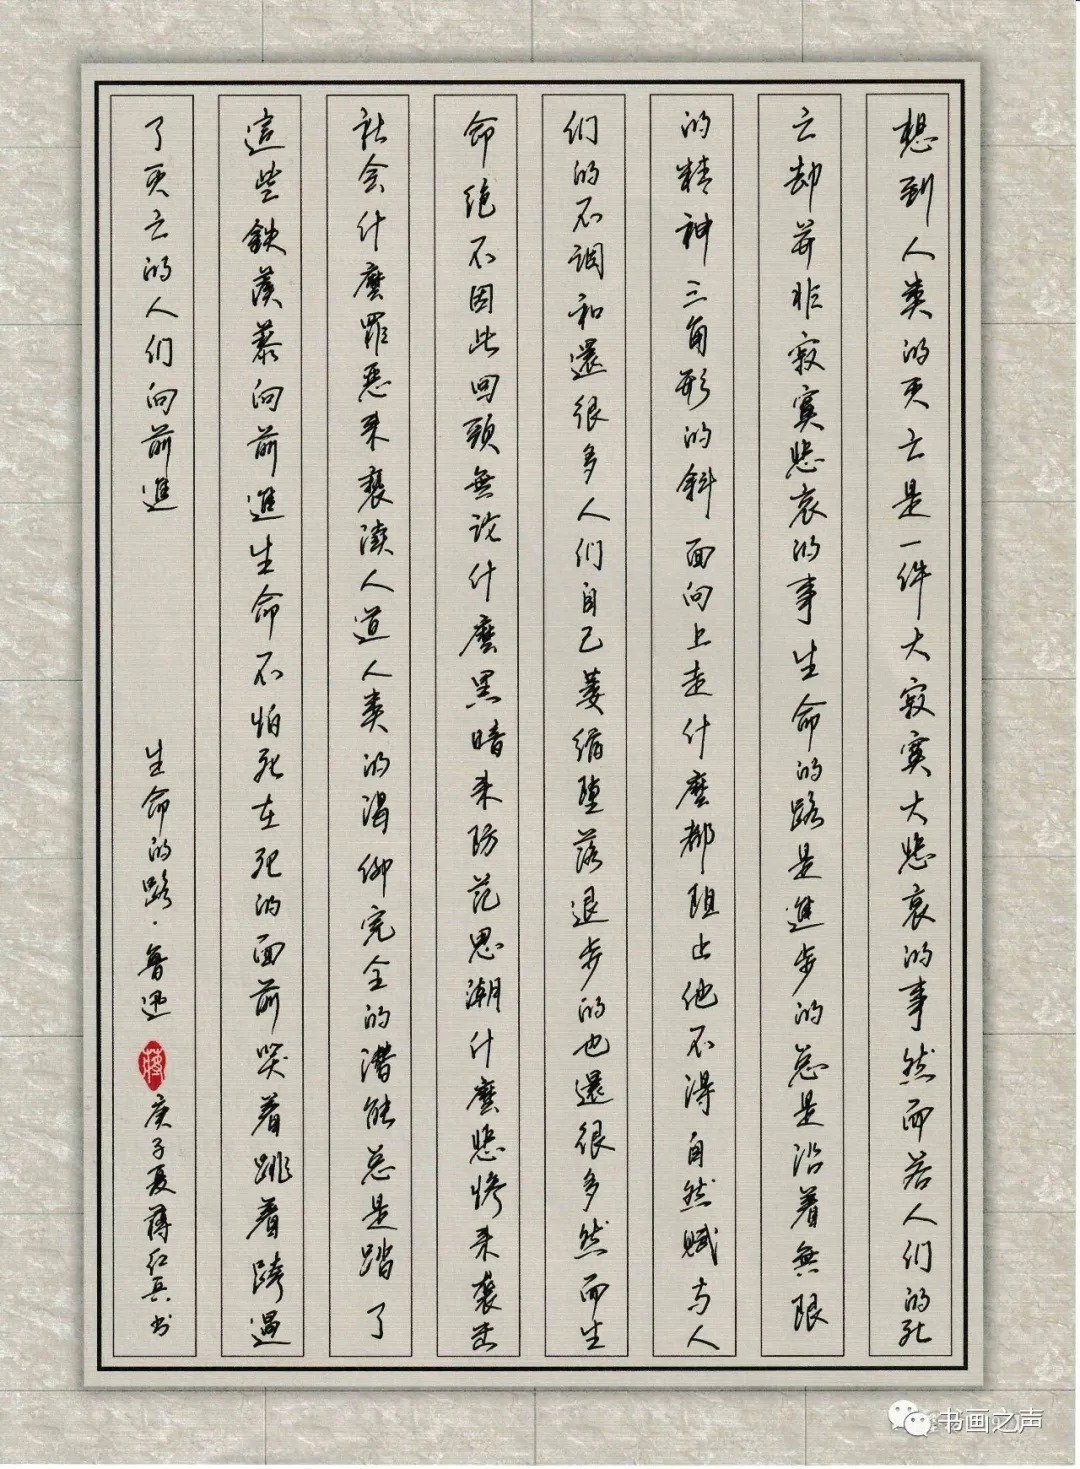 想到人类的灭亡是一件大寂寞大悲哀的事然而若人们的死
亡却并非寂寞悲哀的事生命的路是進步的总是沿着無限
的精神三角形的斜面向上走什麼都阻止他不得自然赋与人
们的不调和還很多人们自己萎缩堕落退步的也還很多然而生
命绝不因此回頭無论什麼黑暗来防范思潮什麼悲惨来袭击
社会什麼罪恶来亵渎人道人类的渴仰完全的潜能总是踏了
這些鉄蒺藜向前進生命不怕死在死的面前哭着跳着跨過
了灭亡的人们向前進
生命的路·鲁迅
蒋
庚子夏蒋红兵书
书画之声